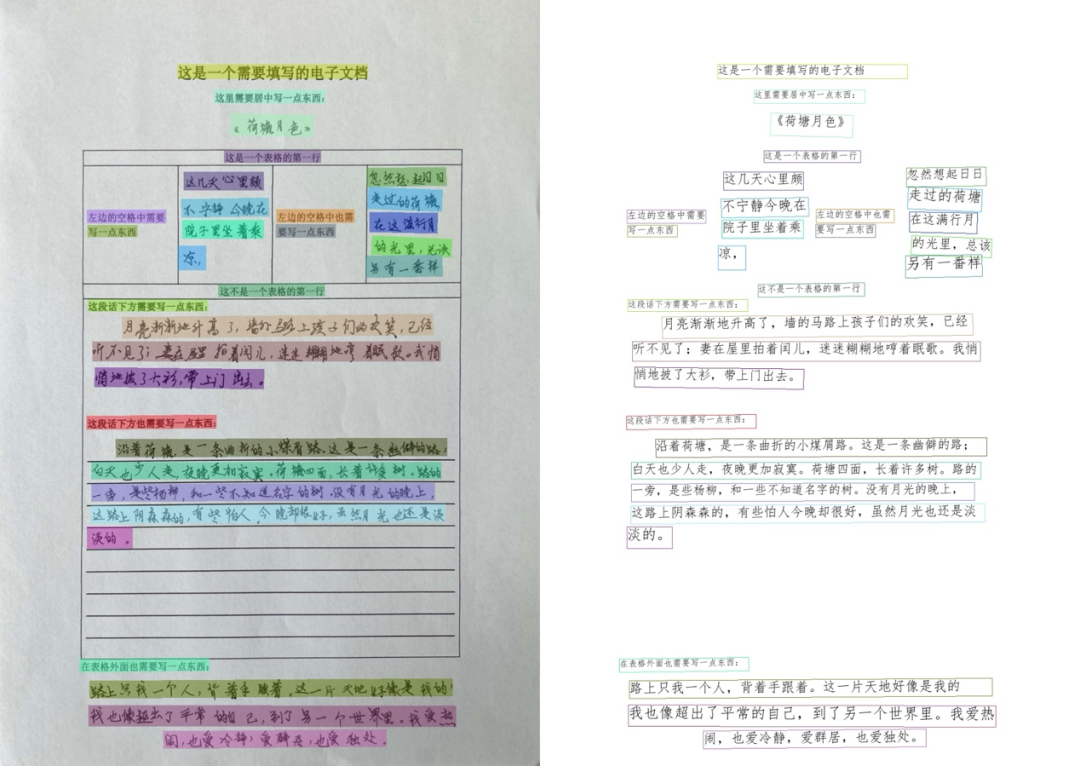 这是一个需要填写的电子文档
这里需要居中写一点东西：
《荷塘月色》
这是一个表格的第一行
左边的空格中需要
写一点东西
这几天心里颇
不宁静 今晚在
院子里坐着乘
凉，
左边的空格中也需
要写一点东西
忽然想起日日
走过的荷塘，
在这满行月
的光里，总该
另有一番样
这不是一个表格的第一行
这段话下方需要写一点东西：
月亮渐渐地升高了，墙外马路上孩子们的欢笑，已经
听不见了；妻在屋里拍着闰儿，迷迷糊糊地哼着眠歌。我悄
悄地披了大衫，带上门出去。
这段话下方也需要写一点东西：
沿着荷塘，是一条曲折的小煤屑路。这是一条幽僻的路；
白天也少人走，夜晚更加寂寞。荷塘四面，长着许多树。路的
一旁，是些杨柳，和一些不知道名字的树。没有月光的晚上，
这路上阴森森的，有些怕人。今晚却很好，虽然月光也还是淡
淡的。
在表格外面也需要写一点东西：
路上只我一个人，背着手踱着。这一片天地好像是我的
我也像超出了平常的自己，到了另一个世界里。我爱热
闹，也爱冷静；爱群居，也爱独处。
这是一个需要填写的电子文档
这里需要居中写一点东西：
《荷塘月色》
这是一个表格的第一行
左边的空格中需要
写一点东西
这几天心里颇
不宁静今晚在
院子里坐着乘
凉，
左边的空格中也需
要写一点东西
忽然想起日日
走过的荷塘
在这满行月
的光里，总该
另有一番样
这不是一个表格的第一行
这段话下方需要写一点东西：
月亮渐渐地升高了，墙的马路上孩子们的欢笑，已经
听不见了；妻在屋里拍着闰儿，迷迷糊糊地哼着眠歌。我悄
悄地披了大衫，带上门出去。
这段话下方也需要写一点东西：
沿着荷塘，是一条曲折的小煤屑路。这是一条幽僻的路；
白天也少人走，夜晚更加寂寞。荷塘四面，长着许多树。路的
一旁，是些杨柳，和一些不知道名字的树。没有月光的晚上，
这路上阴森森的，有些怕人今晚却很好，虽然月光也还是淡
淡的。
在表格外面也需要写一点东西：
路上只我一个人，背着手跟着。这一片天地好像是我的
我也像超出了平常的自己，到了另一个世界里。我爱热
闹，也爱冷静，爱群居，也爱独处。